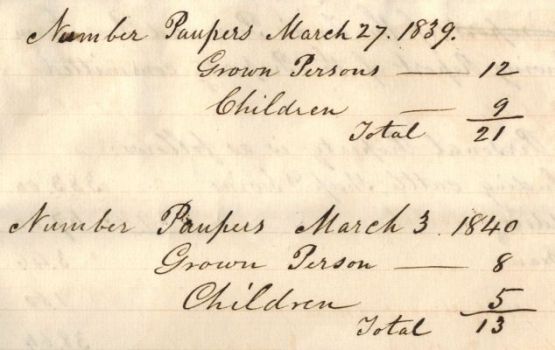 Number Paupers March 27. 1839.
Grown Persons — 12
Children — 9
Total 21
Number Paupers March 3. 1840
Grown Person — 8
Children 5
Total 13